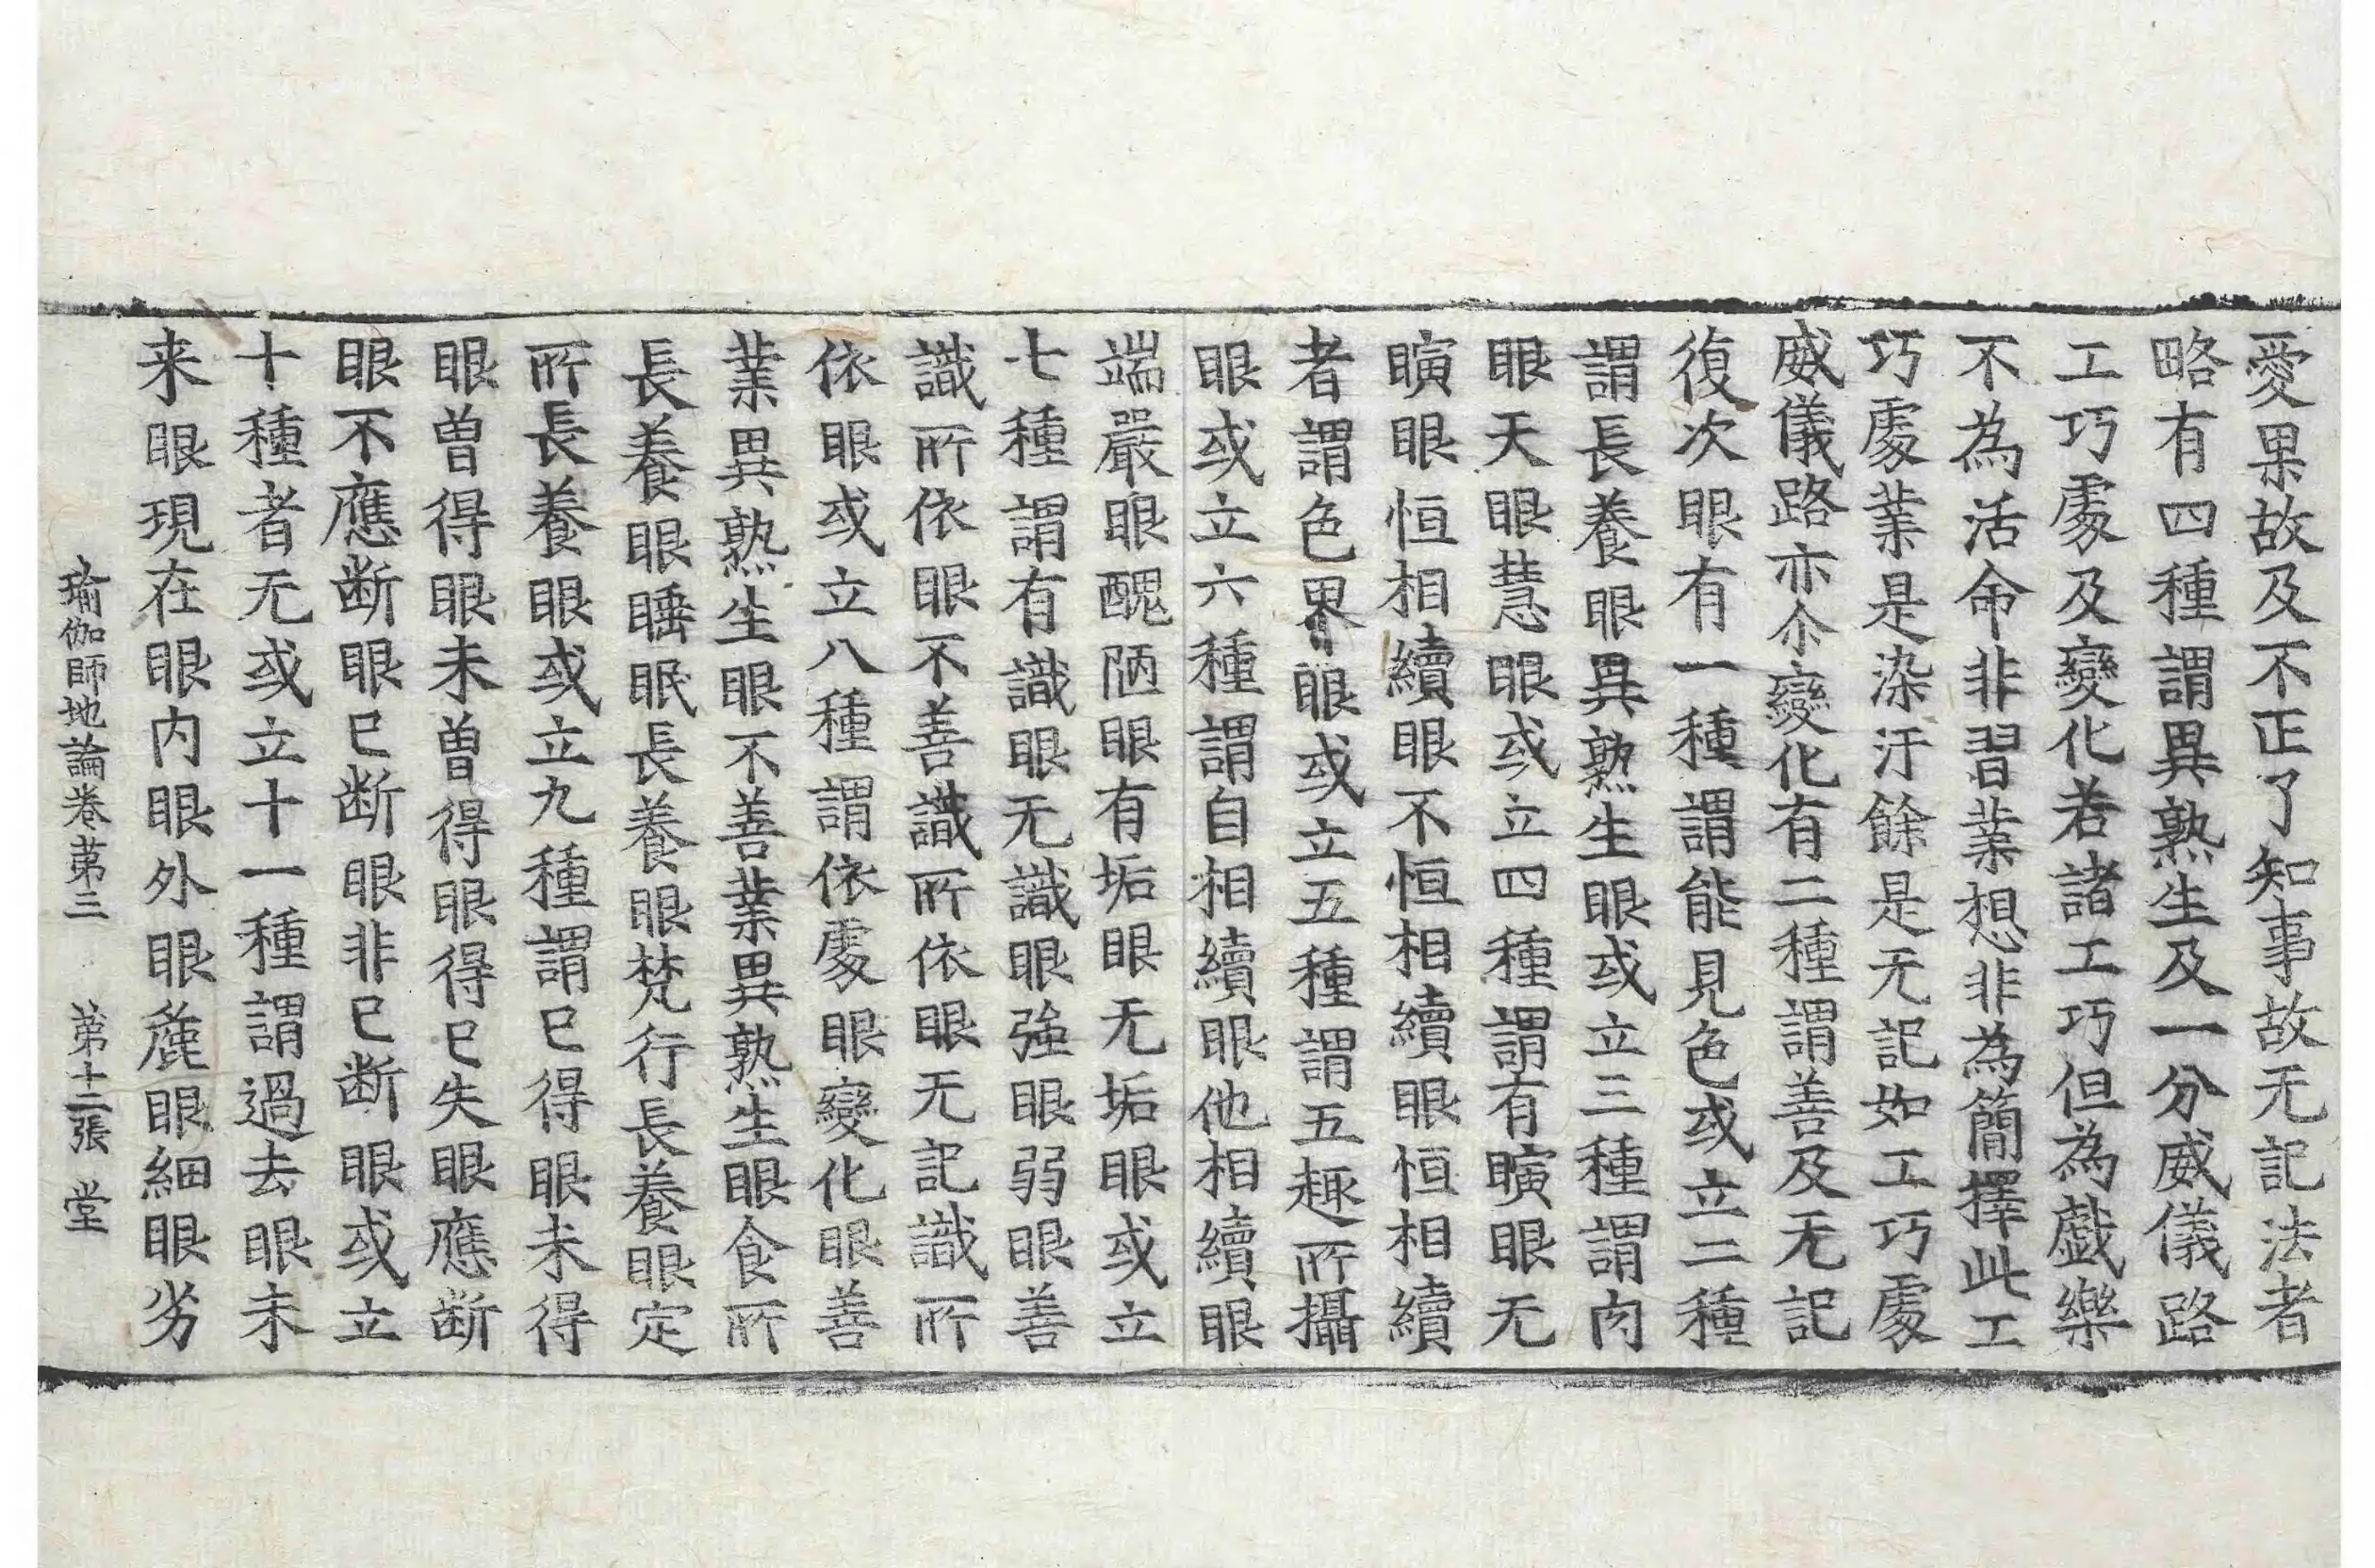 愛果故及不正了知事故无記法者
略有四種謂異熟生及一分威儀路
工巧處及變化若諸工巧但為戱樂
不為活命非習業想非為簡擇此工
巧處業是染汙餘是无記如工巧處
威儀路亦尒變化有二種謂善及无記
復次眼有一種謂能見色或立二種
謂長養眼異熟生眼或立三種謂肉
眼天眼慧眼或立四種謂有瞚眼无
瞚眼恒相續眼不恒相續眼恒相續
者謂色界眼或立五種謂五趣所攝
眼或立六種謂自相續眼他相續眼
端嚴眼醜陋眼有垢眼无垢眼或立
七種謂有識眼无識眼強眼弱眼善
識所依眼不善識所依眼无記識所
依眼或立八種謂依處眼變化眼善
業異熟生眼不善業異熟生眼食所
長養眼睡眠長養眼梵行長養眼定
所長養眼或立九種謂已得眼未得
眼曾得眼未曾得眼得已失眼應断
眼不應断眼已断眼非已断眼或立
十種者无或立十一種謂過去眼未
来眼現在眼内眼外眼麁眼細眼劣
瑜伽師地論卷第三 第十二張 堂